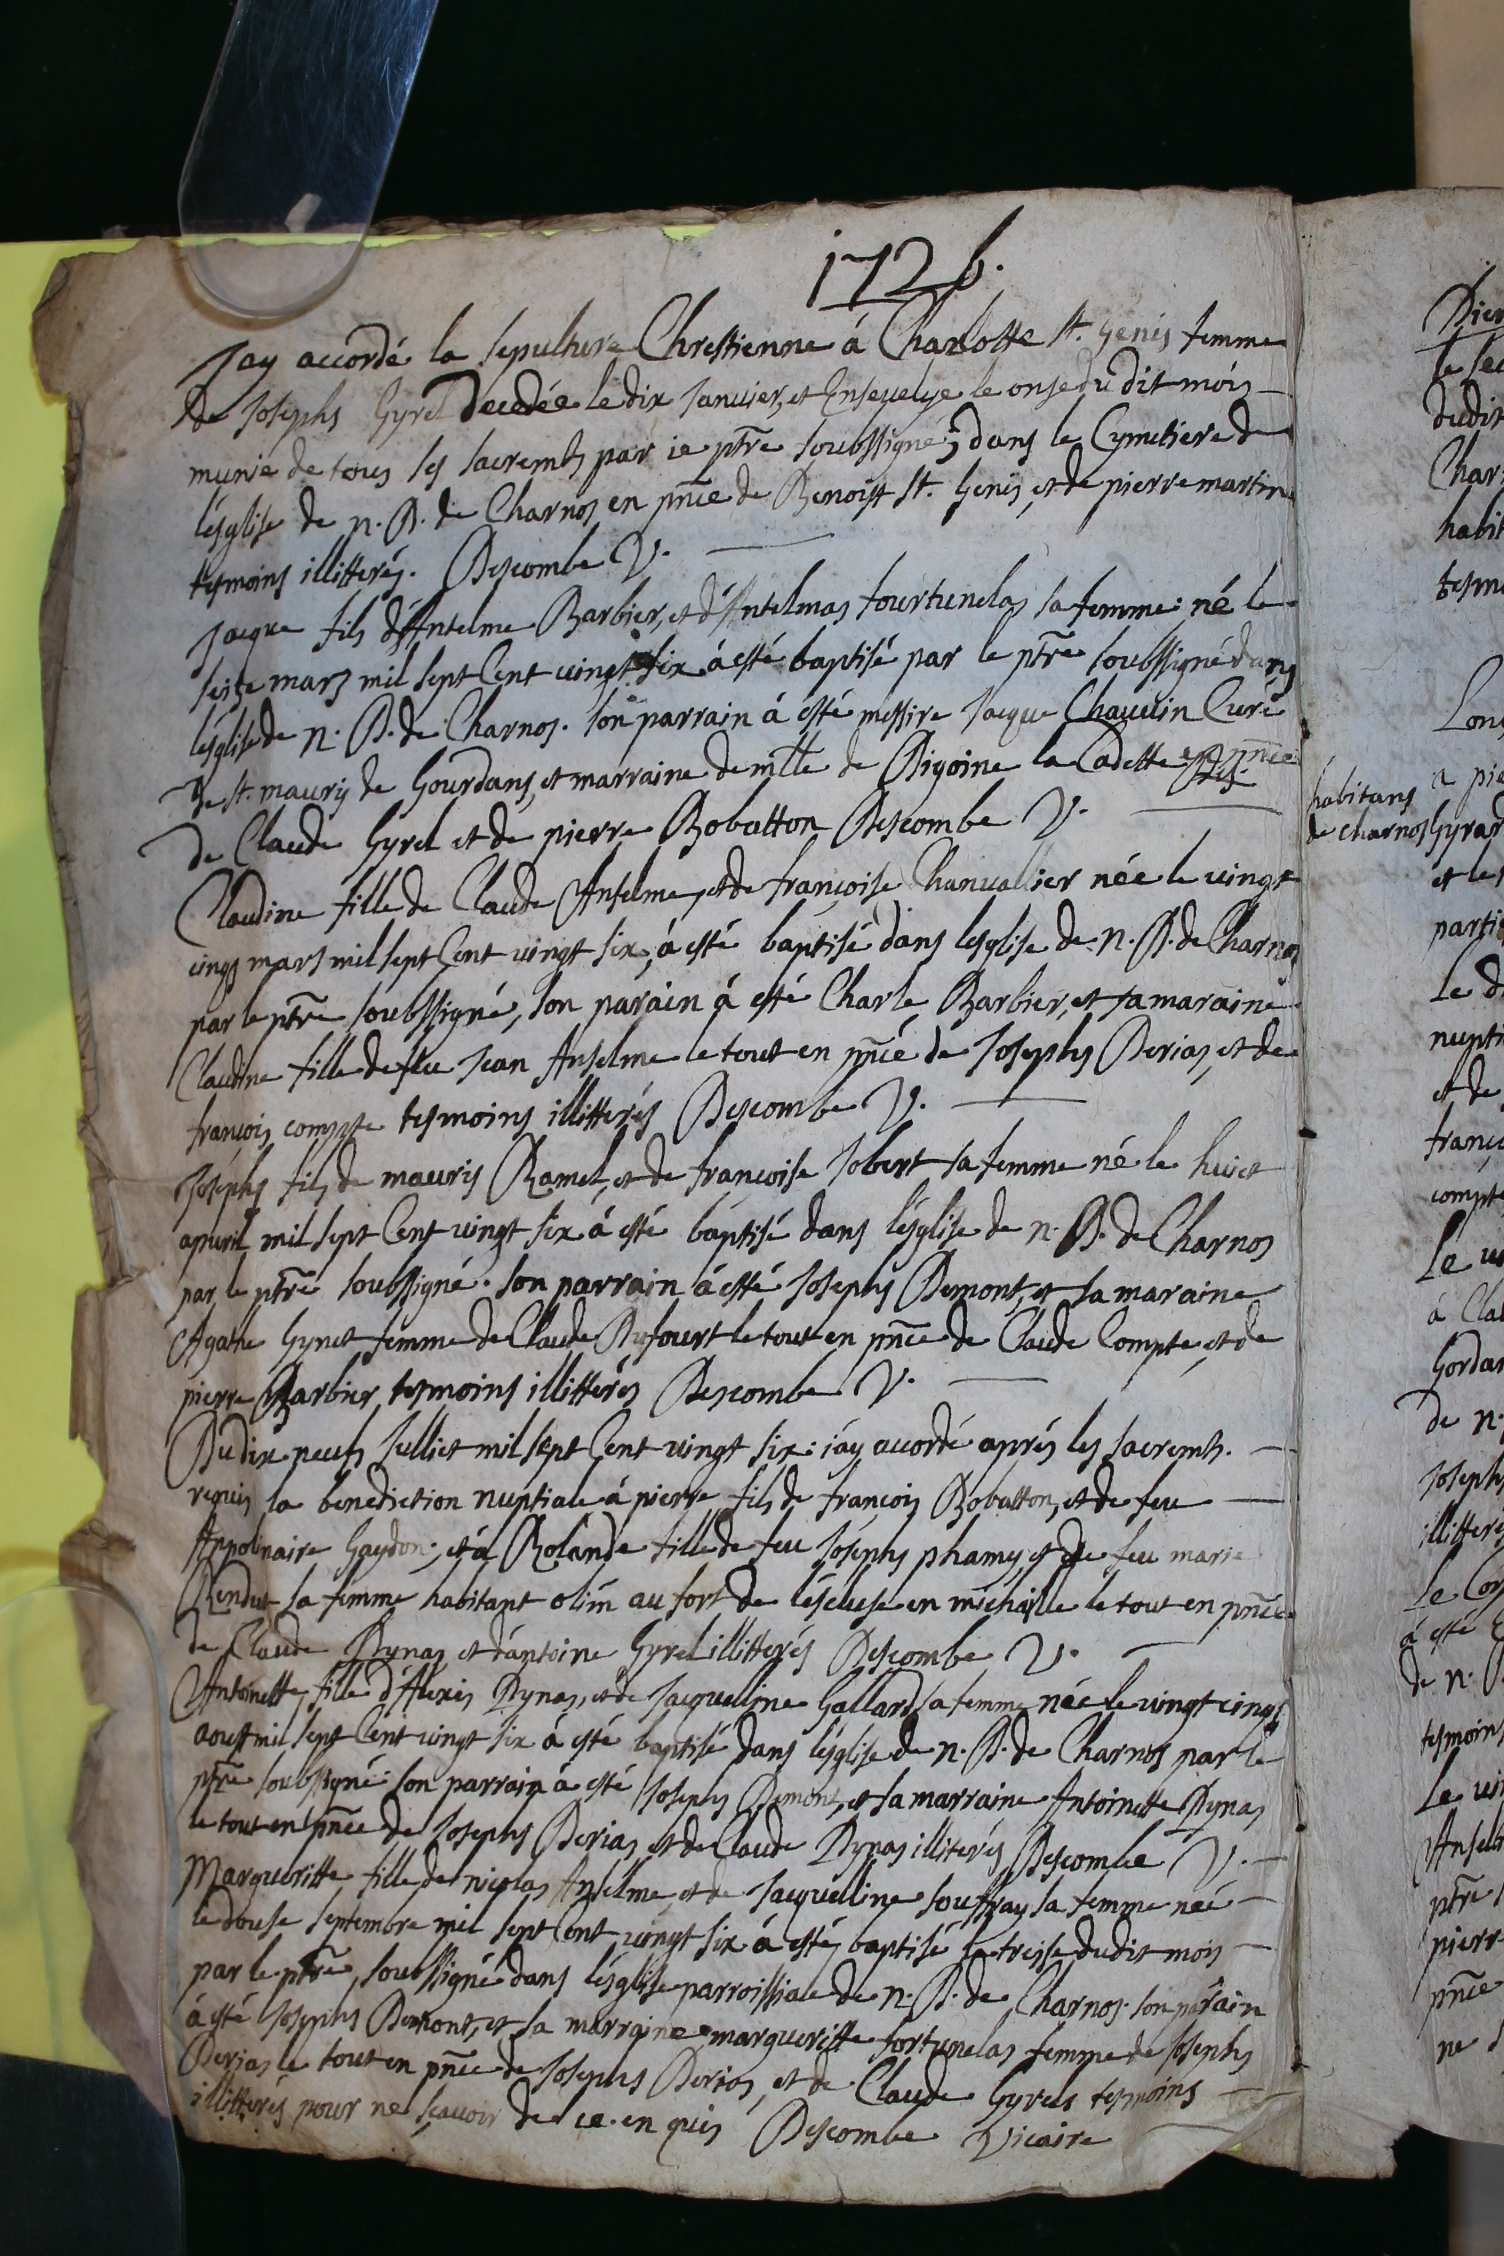 1726.
Jay accordé la sepulture Chrestienne á Charlotte St. Genis femme
de Josephs Gyrel Decedée le dix Janvier, et Ensevelye le onse du dit mois
munie de tous les sacremts par ie ptre soubssigné, dans le Cymetiere de
lésglise de n. D. de Charnos en pnce de Benoist St. Genis, et de pierre martin
tesmoins illitterés. Descombe V.
Jacque fils d'Antelme Barbier, et d'Antelmas fourtunelas sa femme né le
seize mars mil sept Cent vingt six á esté baptisé par le ptre soubssigné dans
lésglise de n. D. de Charnos. son parrain á esté messire Jacque Chauvin Curé
de St. maurij de Gourdans, et marraine demlle de Digoine la Cadette en pnce
de Claude Gyrel et de pierre Bobatton Descombe V.
Claudine fille de Claude Anselme, et de francoise Chanvallier née le vingt
cinq mars mil sept Cent vingt six, á esté baptisé dans lesglise de n. D. de Charnos
par le ptre soubssigné, son parain á esté Charle Barbier, et sa maraine
Claudine fille de feu Jean Anselme le tout en pncé de Josephs Derias, et de
francois compte tesmoins illitterés Descombe V.
Josephs fils de mauris Ramel, et de francoise Jobert sa femme né le huict
apvril mil sept Cent vingt six á esté baptisé dans lésglise de n. D. de Charnos
par le ptre soubssigné. son parrain á esté Josephs Demont, et sa maraine
Agathe Gynet femme de Claude Dufourt le tout en pnce de Claude Compte, et de
pierre Barbier tesmoins illitterés Descombe V.
Du dix neufs Julliet mil sept Cent vingt six: j'ay accordé aprés les sacremts.
requis la benediction nuptiale á pierre fils de francois Bobatton, et de feu
Appolinaire Gaydon, et á Rolande fille de feu Josephs phamy, et de feu marie
Rendut sa femme habitant olim au fort de lésclese en michaille le tout en pnce
de Claude Dynas et d'antoine Gyrel illitterés Descombe V.
Antoinette fille d'Alexis Dynas, et de Jacquelline Gallard sa femme née le vingt cinq
aoust mil sept Cent vingt six á esté baptisé dans lésglise de n. D. de Charnos par le
ptre soubssigné son parrain á esté Josephs Demont, et sa marraine Antoinette Dynas
le tout en pnce de Josephs Derias, et de Claude Dynas illiterés Descombe V.
Margueritte fille de nicolas Anselme, et de Jacquelline souffray sa femme née
le douse septembre mil sept Cent vingt six á esté baptisé le treise dudit mois
par le ptre soubssigné dans lésglise parroissiale de n. D. de Charnos son parain
á esté Josephs Demont, et sa marraine margueritte fortunelas femme de Josephs
Derias le tout en pnce de Josephs Derias, et de Claude Gyrels tesmoins
illitterés pour ne scavoir de ce enquis Descombe Vicaire
habitans
de charnos